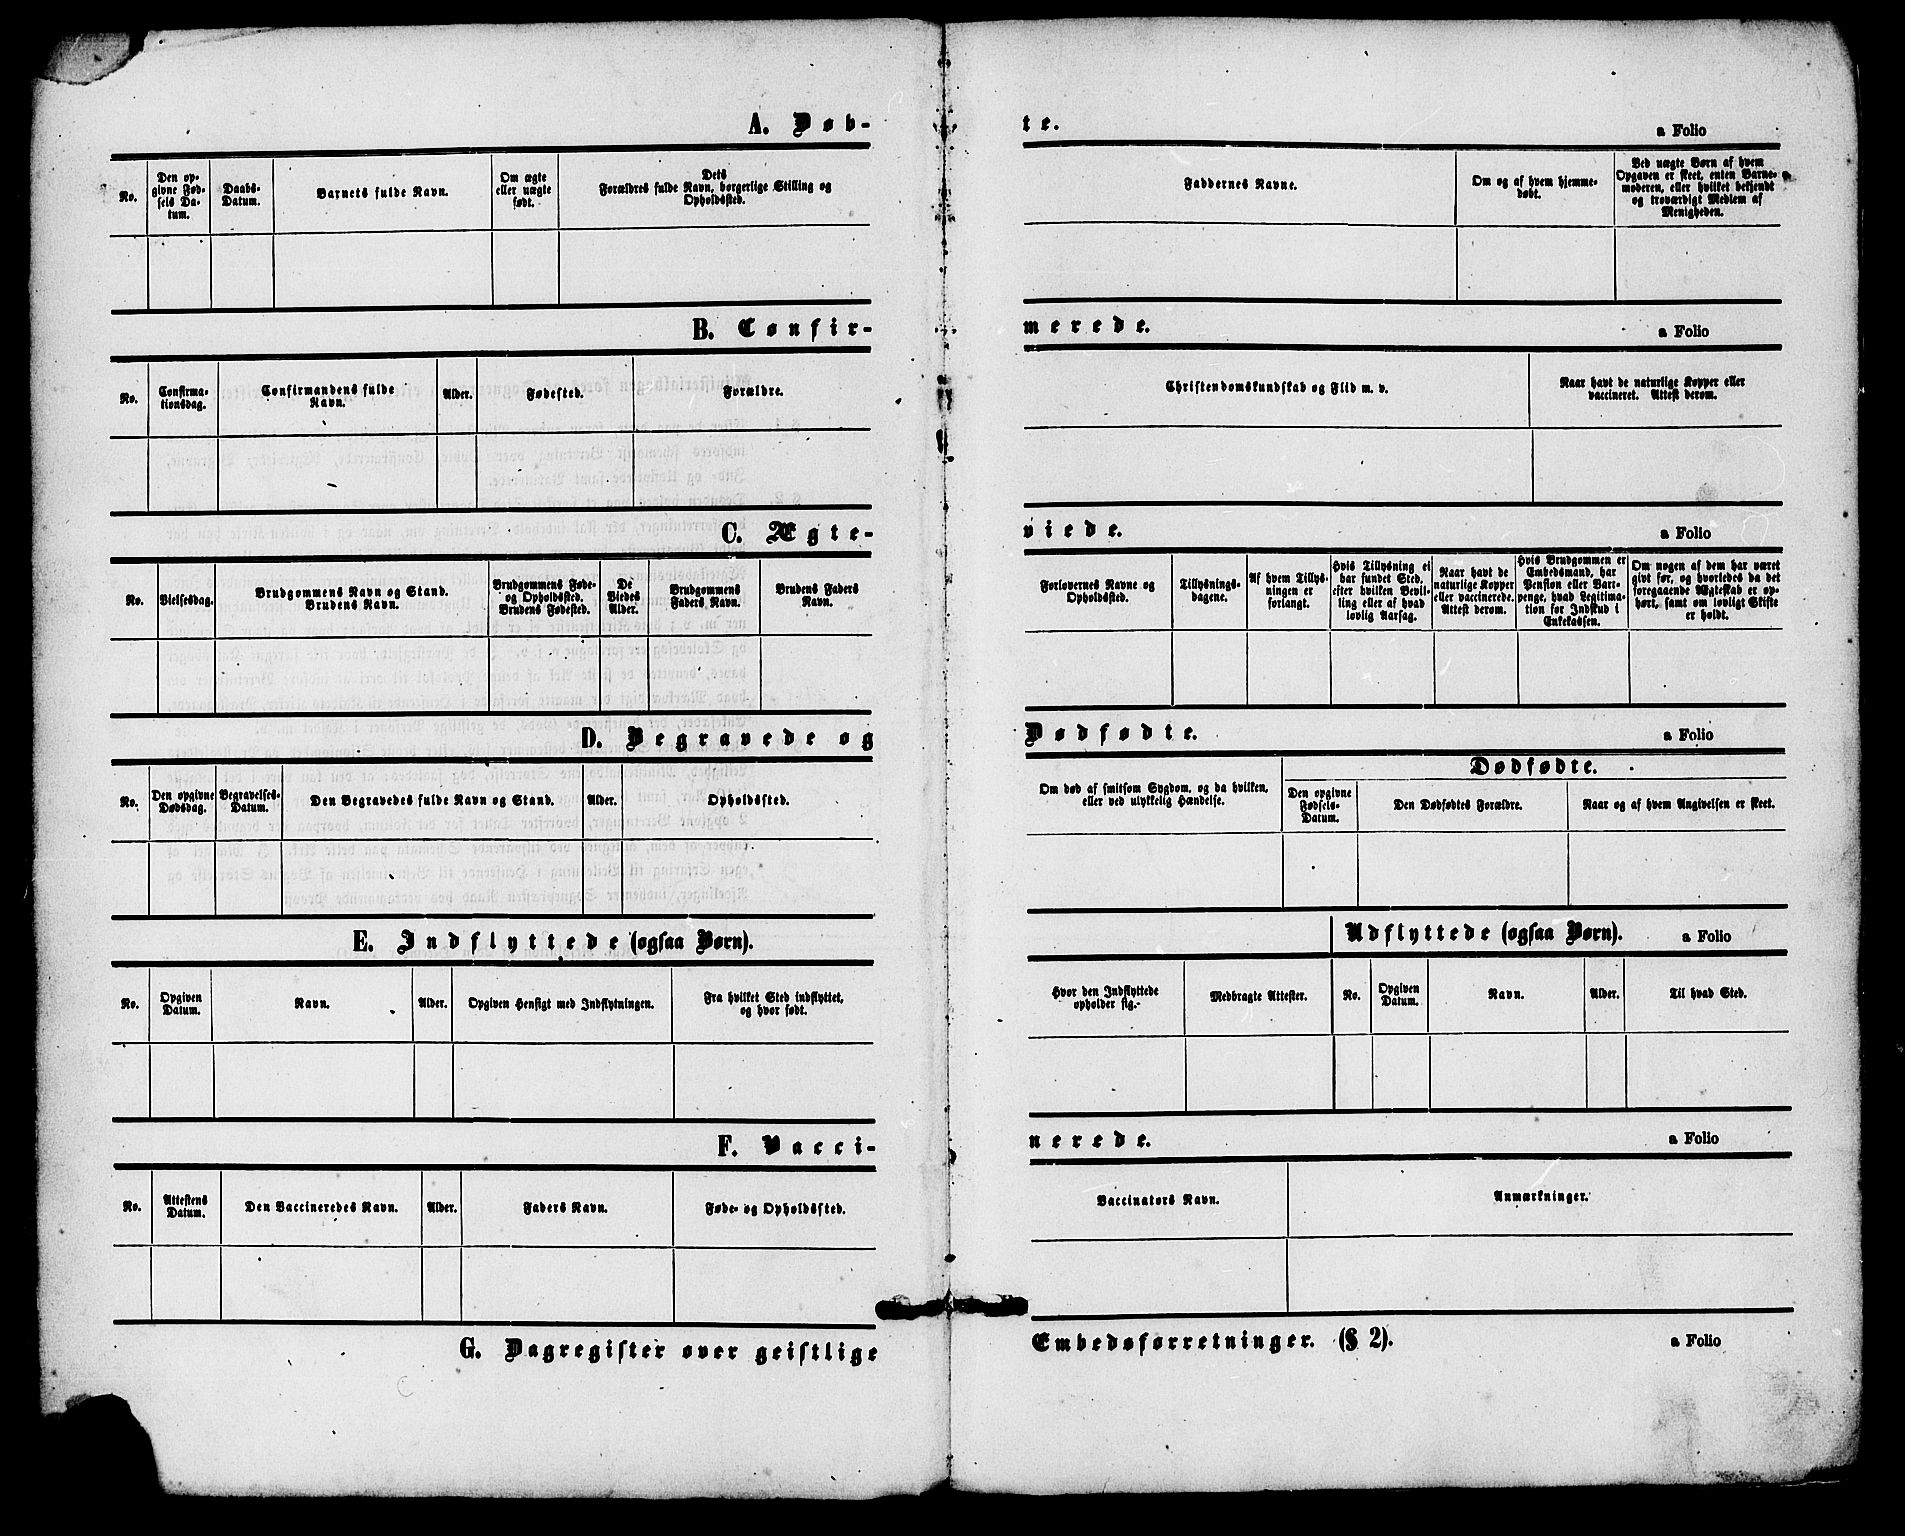 A. Døb-
te.
a Folio
No.
Den op-
givne Fød-
sels Da-
tum.
Daabs-
Datum.
Barnets fulde Navn.
Om ægte
eller uægte
født.
Dets
Forældres fulde Navn, borgerlige Stilling og
Opholdssted.
Faddernes Navne.
Om og af hvem hjemme-
døbt.
Ved uægte Børn af hvem
Opgaven er skeet, enten Barne-
moderen, eller hvilket bekjendt
og troværdigt Medlem af
Menigheden.
B. Confir-
merede.
a Folio
No.
Confirma-
tionsdag.
Confirmandens fulde
Navn.
Alder.
Fødested.
Forældre.
Christendomskundskab og Flid m. v.
Naar havt de naturlige Kopper eller
vaccineret. Attest derom.
C. Ægte-
viede.
a Folio
No.
Vielsesdag.
Brudgommens Navn og Stand.
Brudens Navn.
Brudgommens Føde-
og Opholdssted.
Brudens Fødested.
De
Viedes
Alder.
Brudgommens
Faders Navn.
Brudens Faders
Navn.
Forlovernes Navne og
Opholdssted.
Tillysnings-
dagene.
Af hvem Tillys-
ningen er
forlangt.
Hvis Tillysning ei
har fundet Sted,
efter hvilken Bevil-
ling eller af hvad
lovlig Aarsag.
Naar havt de
naturlige Kopper
eller vaccinerede.
Attest derom.
Hvis Brudgommen er
Embedsmand, har
Pension eller Var-
penge, hvad Legitima-
tion for Indskud i
Enkekassen.
Om nogen af dem har været
gift før, og hvorledes da det
foregaaende Ægteskab er op-
hørt, samt om lovligt Skifte
er holdt.
D. Begravede og
Dødfødte.
a Folio
No.
Den opgivne
Dødsdag.
Begravelses-
Datum.
Den Begravedes fulde Navn og Stand.
Alder.
Opholdssted.
Om død af smitsom Sygdom, og da hvilken,
eller ved ulykkelig Hændelse.
Dødfødte.
Den opgivne
Fødsels-
Datum.
Den Dødfødtes Forældre.
Naar og af hvem Angivelsen er skeet.
E. Indflyttede (ogsaa Børn).
Udflyttede (ogsaa Børn).
a Folio
No.
Opgiven
Datum.
Navn.
Alder.
Opgiven Hensigt med Indflytningen.
Fra hvilket Sted indflyttet,
og hvor født.
Hvor den Indflyttede
opholder sig.
Medbragte Attester.
No.
Opgiven
Datum.
Navn.
Alder.
Til hvad Sted.
F. Vacci-
nerede.
a Folio
No.
Attestens
Datum.
Den Vaccineredes Navn.
Alder.
Faders Navn.
Føde- og Opholdssted.
Vaccinators Navn.
Anmærkninger.
G. Dagregister over geistlige
Embedsforretninger. (§ 2).
a Folio